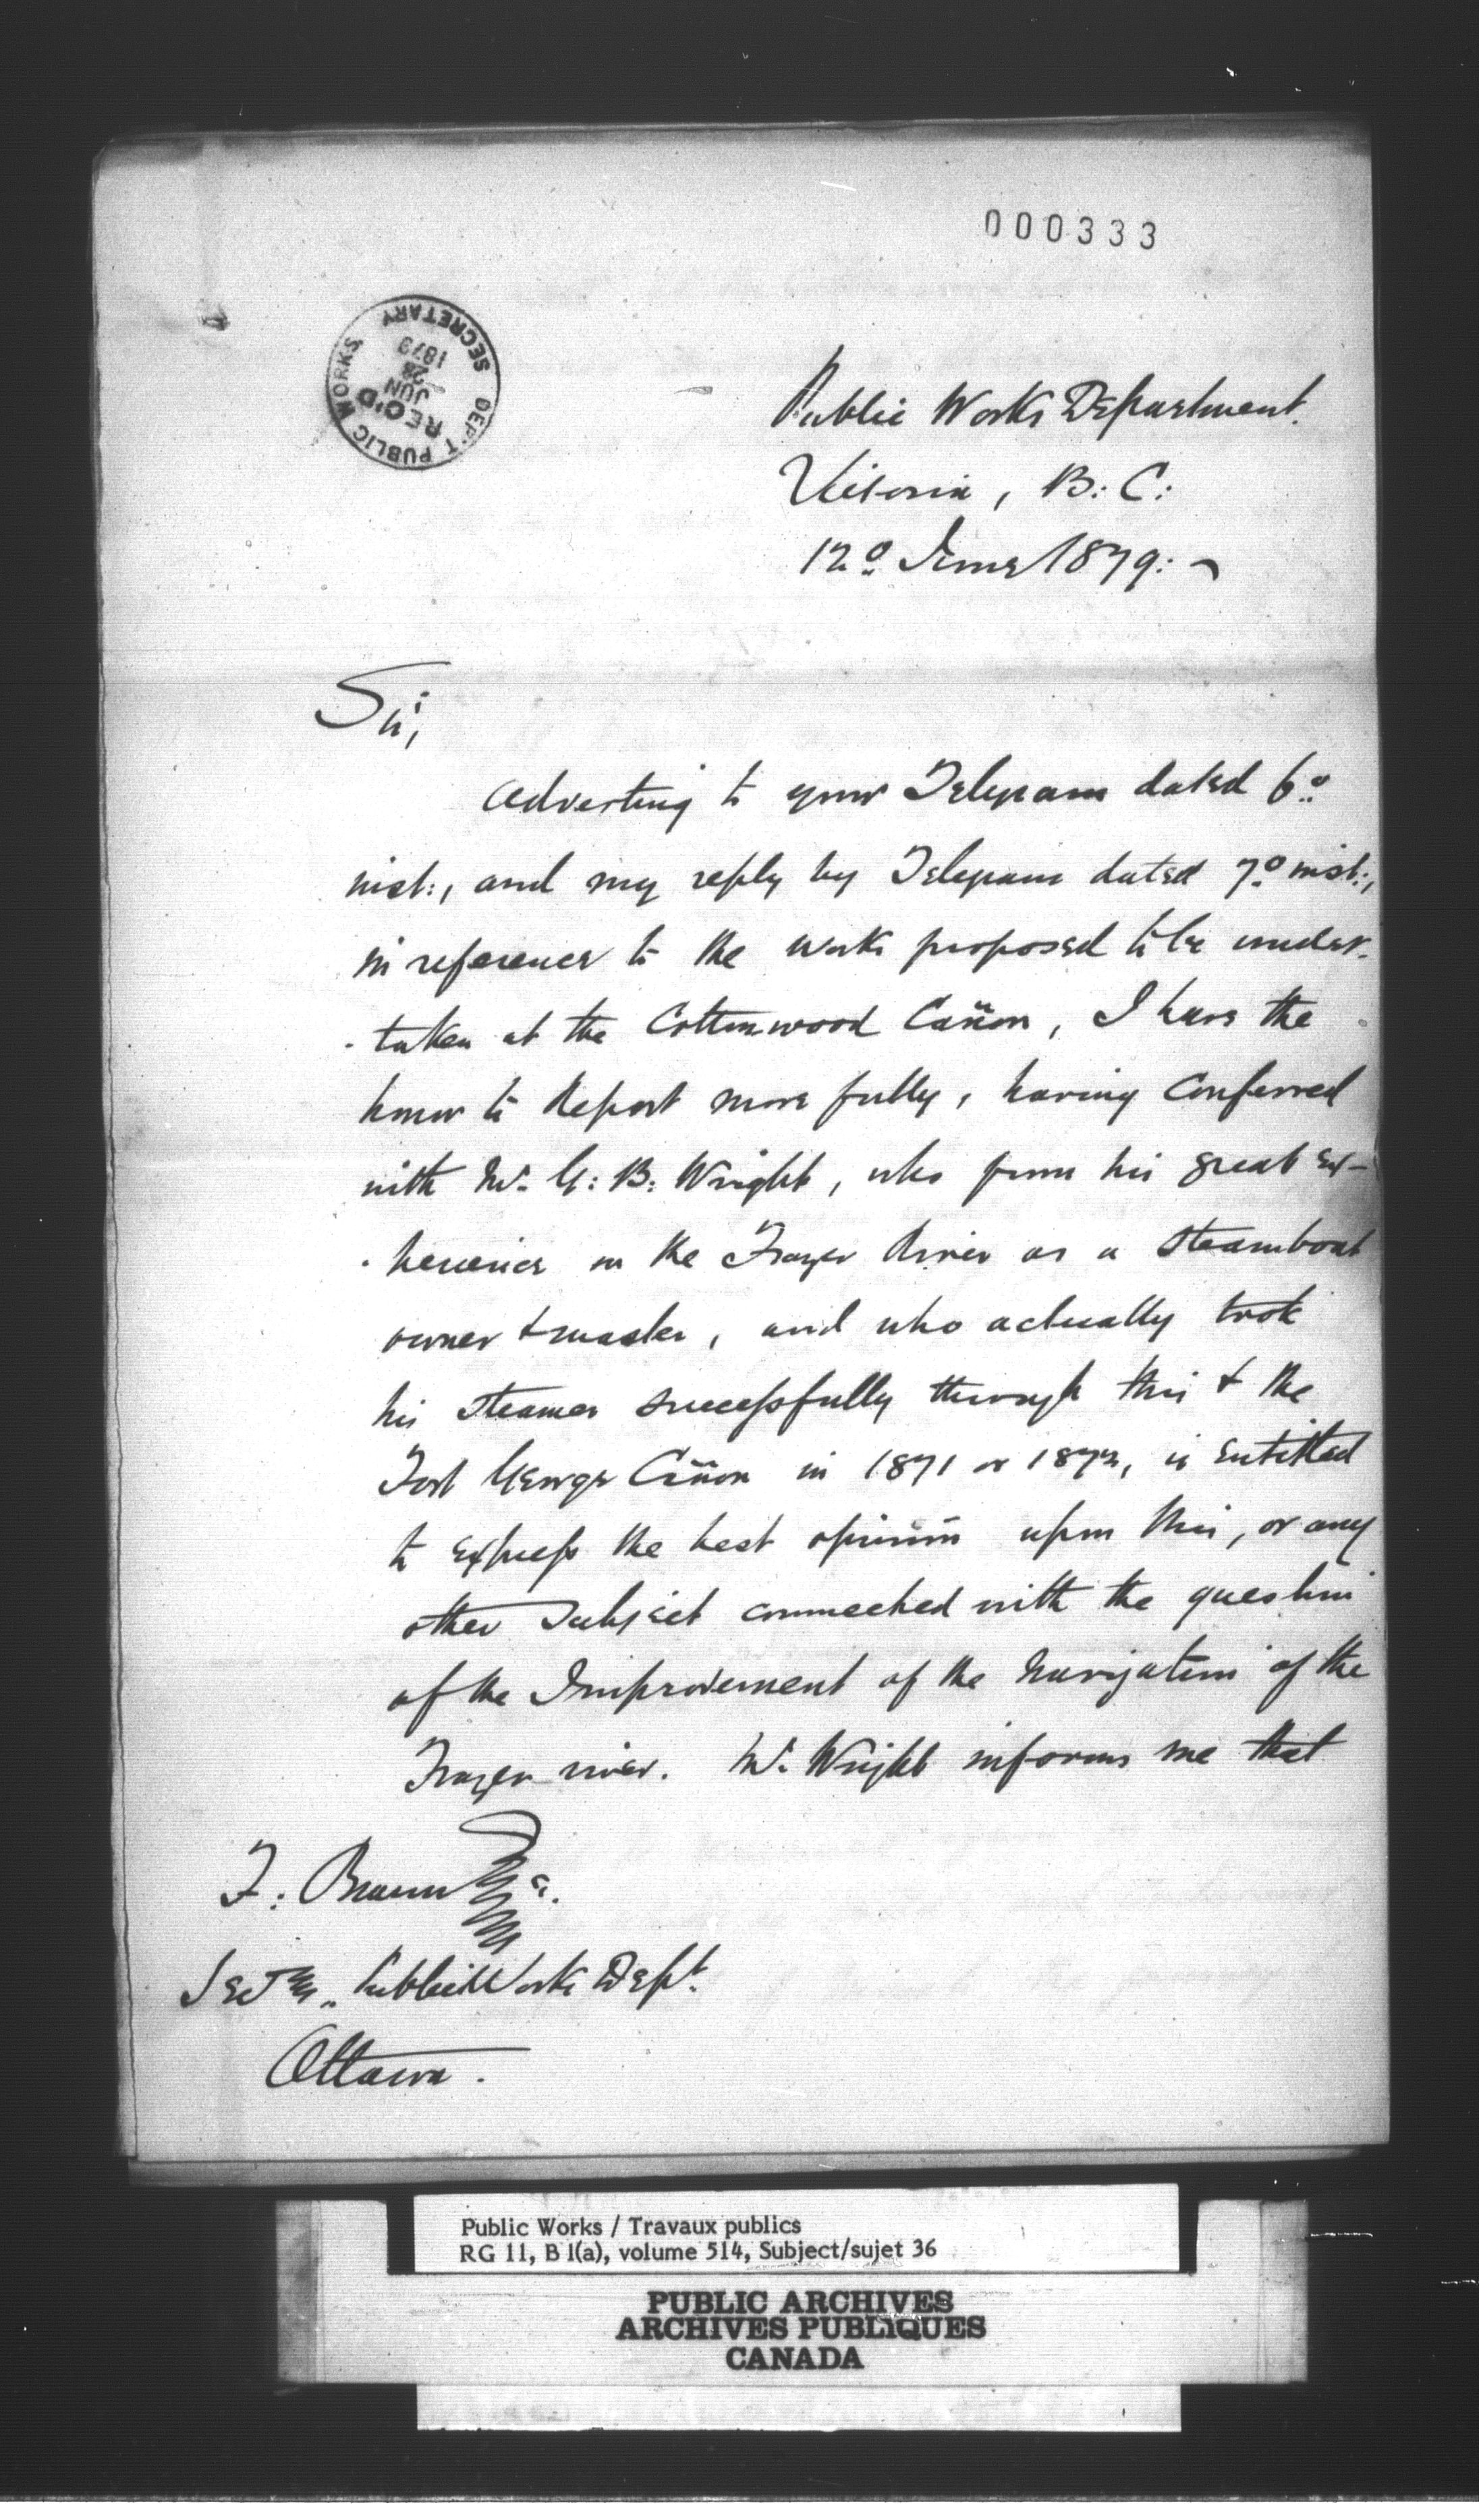 000333
DEP'T PUBLIC WORKS SECRETARY
REC'D
JUN
1879
Public Works Department.
Victoria, B: C:
12º June 1879:
Sir,
Adverting to your Telegram dated 6º
inst:, and my reply by Telegram dated 7º inst:,
in reference to the work proposed to be under-
-taken at the Cottonwood Cañon, I have the
honor to Report more fully, having Conferred
with Mr. G: B: Wright, who from his great ex-
-perience on the Frazer River as a steamboat
owner & master, and who actually took
his steamer successfully through this & the
Fort George Cañon in 1871 or 1872, is entitled
to express the best opinion upon this, or any
other subject connected with the question
of the Improvement of the Navigation of the
Frazer river. Mr. Wright informs me that
F: Braun Esq.
Secty., Public Works Dept.
Ottawa.
Public Works / Travaux publics
RG 11, B 1(a), volume 514, Subject/sujet 36
PUBLIC ARCHIVES
ARCHIVES PUBLIQUES
CANADA